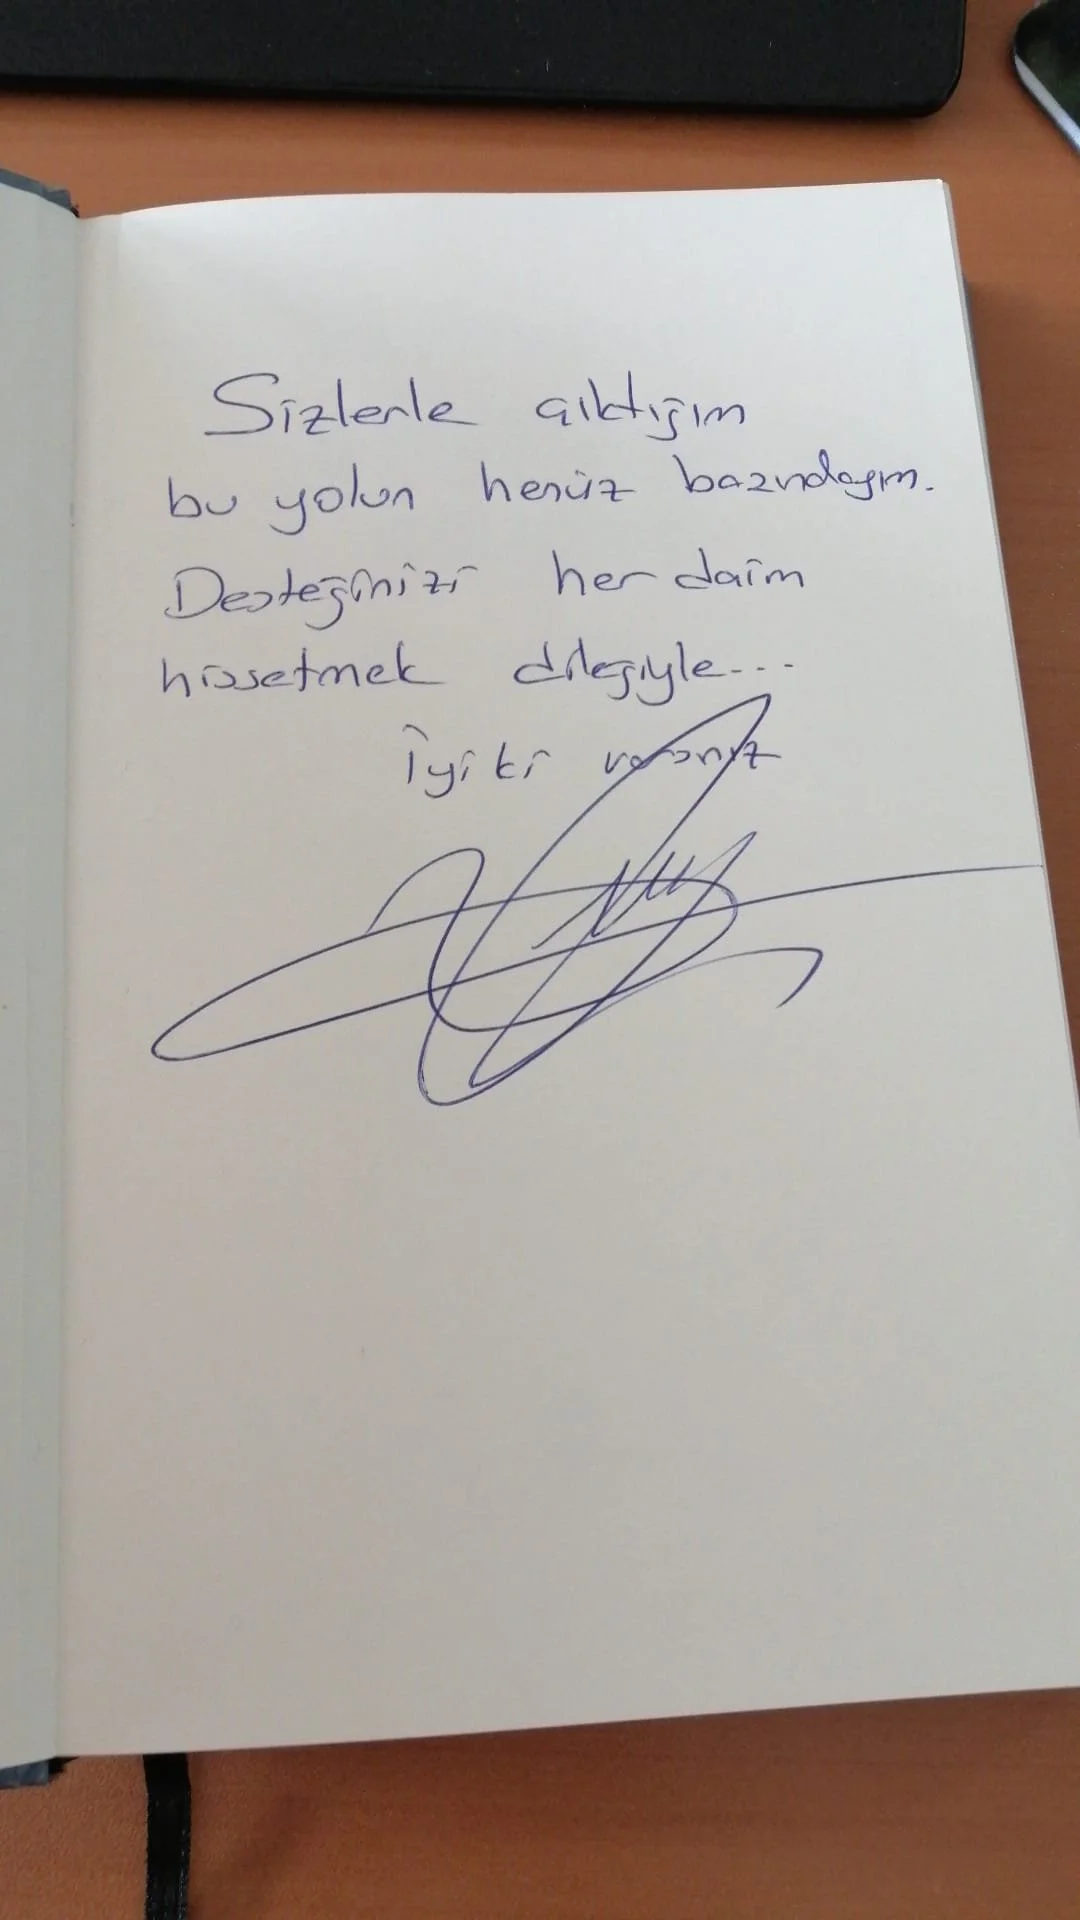 Sizlerle çıktığım
bu yolun henüz başındayım.
Desteğinizi her daim
hissetmek dileğiyle...
İyi ki varsınız